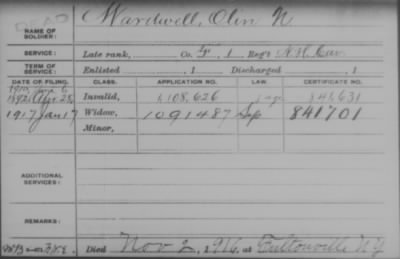 DEAD
NAME OF SOLDIER: Wardwell, Olin N
SERVICE: Late rank, Co. 1 Reg't N.H. Cav.
TERM OF SERVICE: Enlisted , 1 Discharged , 1
DATE OF FILING. CLASS. APPLICATION NO. LAW. CERTIFICATE NO.
1892 Apr 28, Invalid, 1,108,626 841,631
1917 Jan 17 Widow, 1091487 Sep 841701
Minor,
ADDITIONAL SERVICES:
REMARKS:
Died Nov 2, 1916, at Fultonville NY